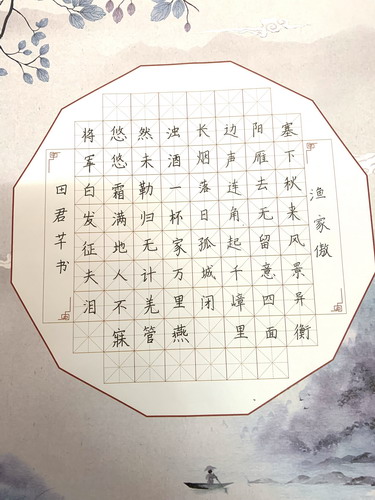 渔家傲
塞下秋来风景异衡
阳雁去无留意四面
边声连角起千嶂里
长烟落日孤城闭
浊酒一杯家万里燕
然未勒归无计羌管
悠悠霜满地人不寐
将军白发征夫泪
田君芊书